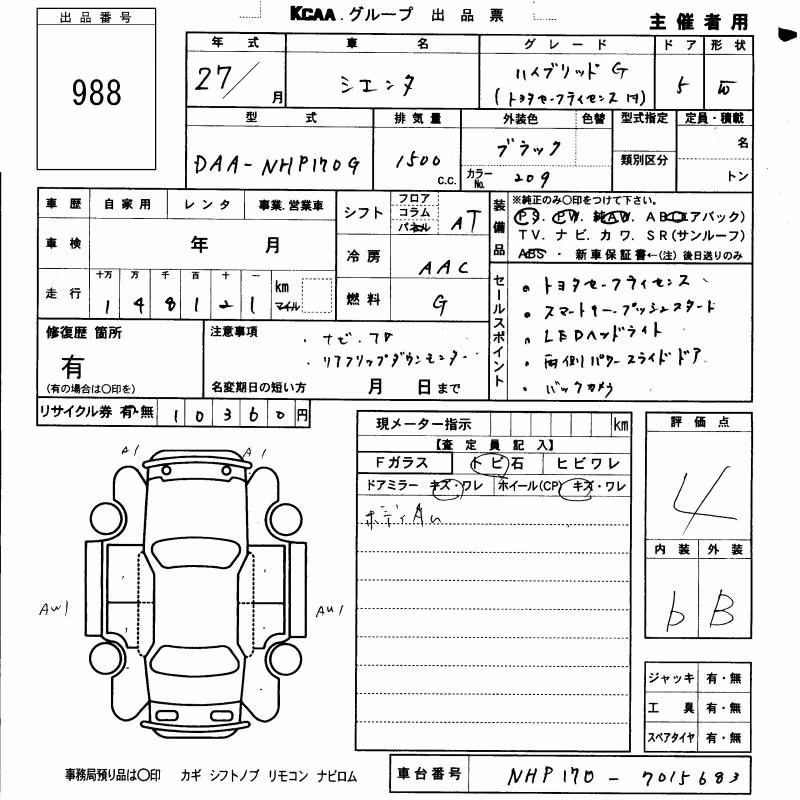 KCAA.グループ 出品票
主催者用
出品番号
988
年式 車名 グレード ドア 形状
27/ 月 シエンタ ハイブリッド G 5 W
(トヨタセーフティセンス付)
型式 排気量 外装色 色替 型式指定 定員・積載
DAA-NHP170G 1500 c.c. ブラック 名
カラーNo. 209 類別区分 トン
車歴 自家用 レンタ 事業.営業車
車検 年 月
走行 十万 万 千 百 十 一 km マイル
1 4 8 1 2 1
シフト フロア コラム パネル AT
冷房 AAC
燃料 G
装備品
※純正のみ〇印をつけて下さい。
PS. PW. 純AW. AB(エアバック)
TV. ナビ. カワ. SR(サンルーフ)
ABS ・ 新車保証書←(注)後日送りのみ
セールスポイント
・トヨタセーフティセンス
・スマートキー.プッシュスタート
・LEDヘッドライト
・両側パワースライドドア
・バックカメラ
修復歴 箇所
有
(有の場合は〇印を)
注意事項
・リアフリップダウンモニター
名変期日の短い方 月 日まで
リサイクル券 有・無 10360円
現メーター指示 km
【査定員記入】
Fガラス トビ石 ヒビワレ
ドアミラー キズ・ワレ ホイール(CP) キズ・ワレ
評価点
4
内装 外装
b B
A1 A1
AW1 AU1
ジャッキ 有・無
工具 有・無
スペアタイヤ 有・無
事務局預り品は〇印 カギ シフトノブ リモコン ナビロム
車台番号 NHP170-7015683